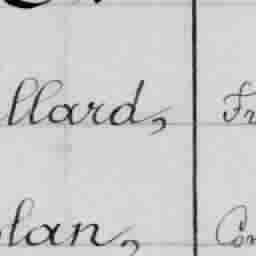 llard, Fr
lan, Con